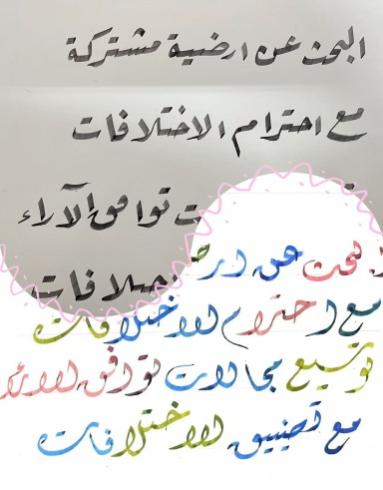 البحث عن ارضية مشتركة
مع احترام الاختلافات
ت توافق الآراء
ختلافات
البحث عن ارض
مع احترام الاختلافات
توسيع مجالات توافق الاراء
مع تضييق الاختلافات